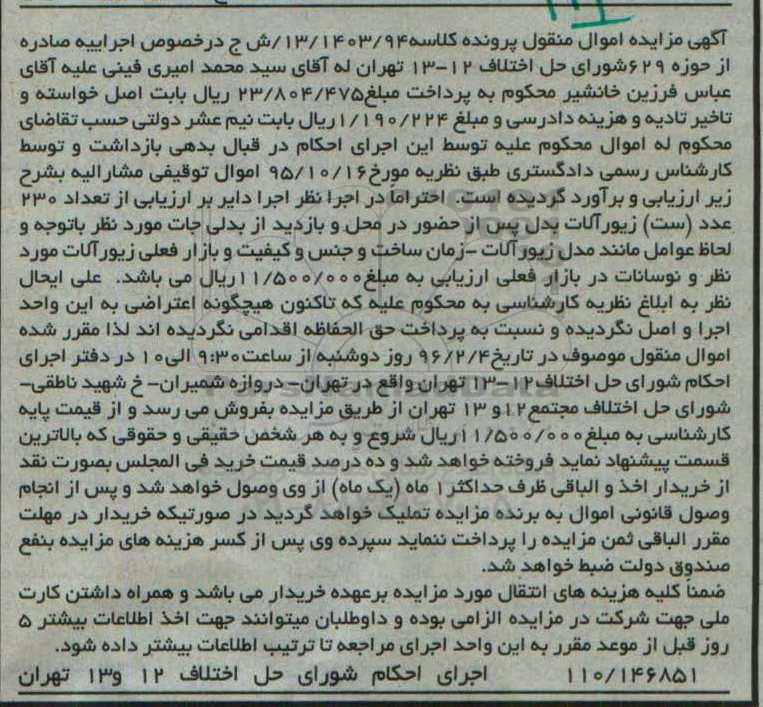 آگهی مزایده اموال منقول پرونده کلاسه۱۳/۱۴۰۳/۹۴/ش ج درخصوص اجراییه صادره
از حوزه ۶۲۹شورای حل اختلاف ۱۲-۱۳ تهران له آقای سید محمد امیری فینی علیه آقای
عباس فرزین خانشیر محکوم به پرداخت مبلغ۲۳/۸۰۴/۴۷۵ ریال بابت اصل خواسته و
تاخیر تادیه و هزینه دادرسی و مبلغ ۱/۱۹۰/۲۲۴ریال بابت نیم عشر دولتی حسب تقاضای
محکوم له اموال محکوم علیه توسط این اجرای احکام در قبال بدهی بازداشت و توسط
کارشناس رسمی دادگستری طبق نظریه مورخ۹۵/۱۰/۱۶ اموال توقیفی مشارالیه بشرح
زیر ارزیابی و برآورد گردیده است. احتراماً در اجرا نظر اجرا دایر بر ارزیابی از تعداد ۲۳۰
عدد (ست) زیورآلات بدل پس از حضور در محل و بازدید از بدلی جات مورد نظر باتوجه و
لحاظ عوامل مانند مدل زیور آلات -زمان ساخت و جنس و کیفیت و بازار فعلی زیورآلات مورد
نظر و نوسانات در بازار فعلی ارزیابی به مبلغ۱۱/۵۰۰/۰۰۰ریال می باشد. علی ایحال
نظر به ابلاغ نظریه کارشناسی به محکوم علیه که تاکنون هیچگونه اعتراضی به این واحد
اجرا و اصل نگردیده و نسبت به پرداخت حق الحفاظه اقدامی نگردیده اند لذا مقرر شده
اموال منقول موصوف در تاریخ۹۶/۲/۴ روز دوشنبه از ساعت۹:۳۰ الی۱۰ در دفتر اجرای
احکام شورای حل اختلاف۱۲-۱۳ تهران واقع در تهران- دروازه شمیران- خ شهید ناطقی-
شورای حل اختلاف مجتمع۱۲و ۱۳ تهران از طریق مزایده بفروش می رسد و از قیمت پایه
کارشناسی به مبلغ۱۱/۵۰۰/۰۰۰ریال شروع و به هر شخص حقیقی و حقوقی که بالاترین
قسمت پیشنهاد نماید فروخته خواهد شد و ده درصد قیمت خرید فی المجلس بصورت نقد
از خریدار اخذ و الباقی ظرف حداکثر۱ ماه (یک ماه) از وی وصول خواهد شد و پس از انجام
وصول قانونی اموال به برنده مزایده تملیک خواهد گردید در صورتیکه خریدار در مهلت
مقرر الباقی ثمن مزایده را پرداخت ننماید سپرده وی پس از کسر هزینه های مزایده بنفع
صندوق دولت ضبط خواهد شد.
ضمناً کلیه هزینه های انتقال مورد مزایده برعهده خریدار می باشد و همراه داشتن کارت
ملی جهت شرکت در مزایده الزامی بوده و داوطلبان میتوانند جهت اخذ اطلاعات بیشتر ۵
روز قبل از موعد مقرر به این واحد اجرای مراجعه تا ترتیب اطلاعات بیشتر داده شود.
۱۱۰/۱۴۶۸۵۱ اجرای احکام شورای حل اختلاف ۱۲ و۱۳ تهران
ParsNamadData